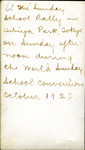 At the Sunday
School Rally in
Hibiya Park, Tokyo
on Sunday after-
noon during
the World Sunday
School Convention
October 1920.